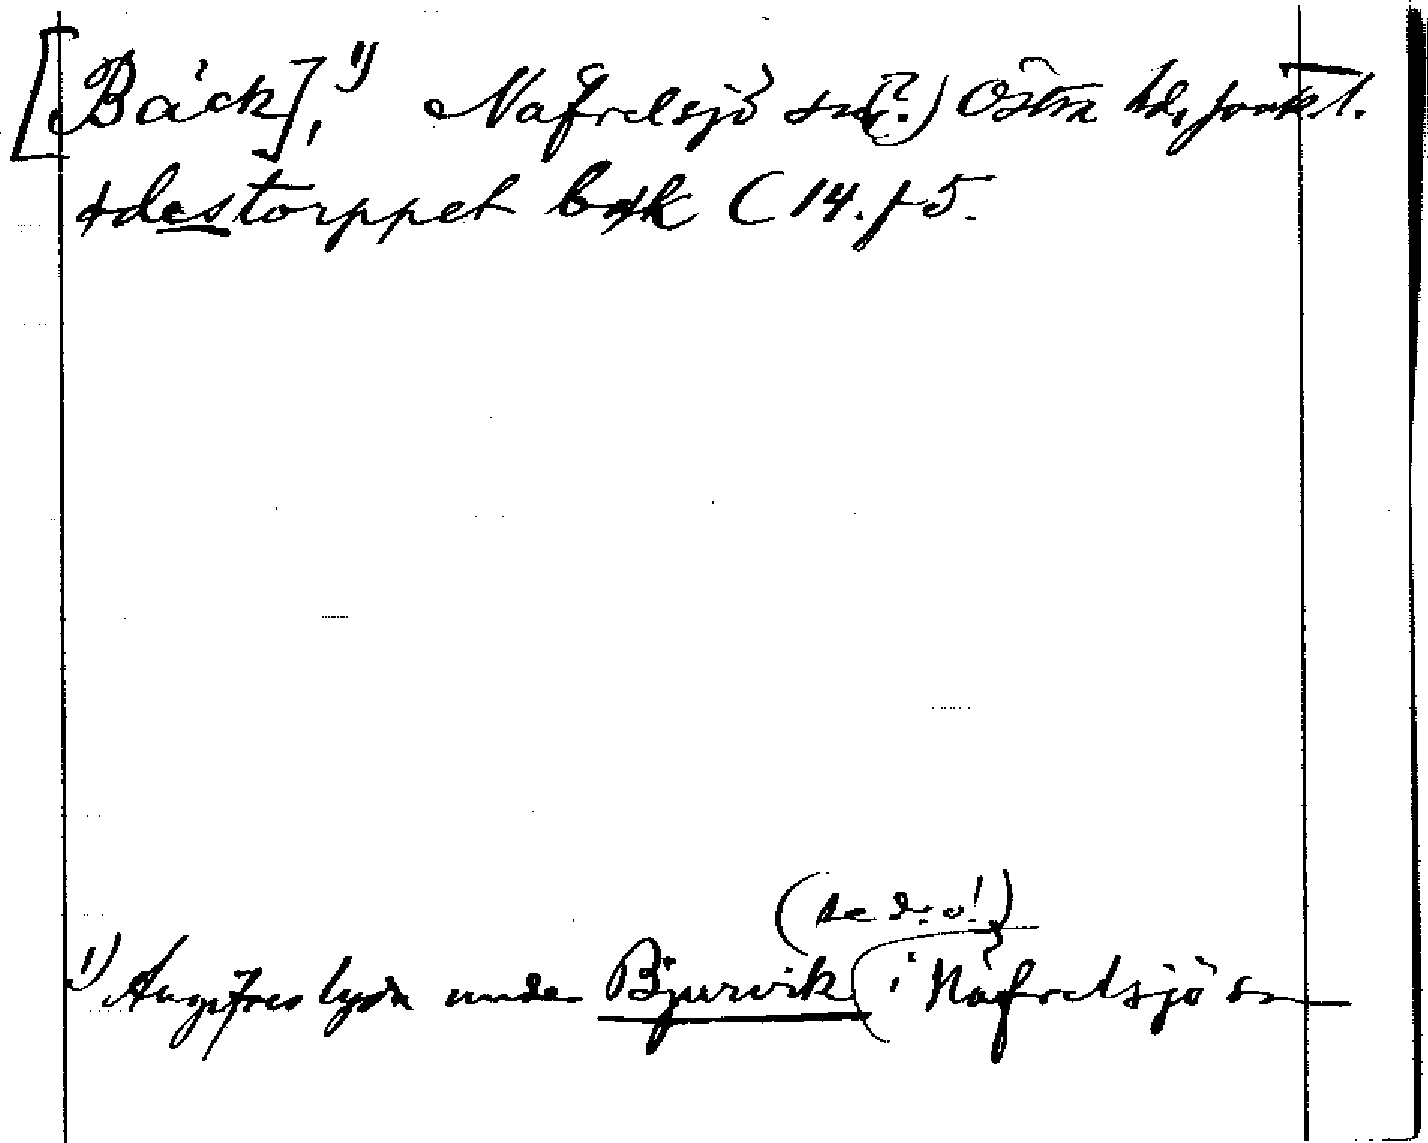 [Bäck], 1) Näfvelsjö sn (?.) Östra hd, Jönk. l.
torppet bäk C 14. f 5.
(se d. o!)
1) Angifves lyda under Bjurvik i Näfvelsjö sn